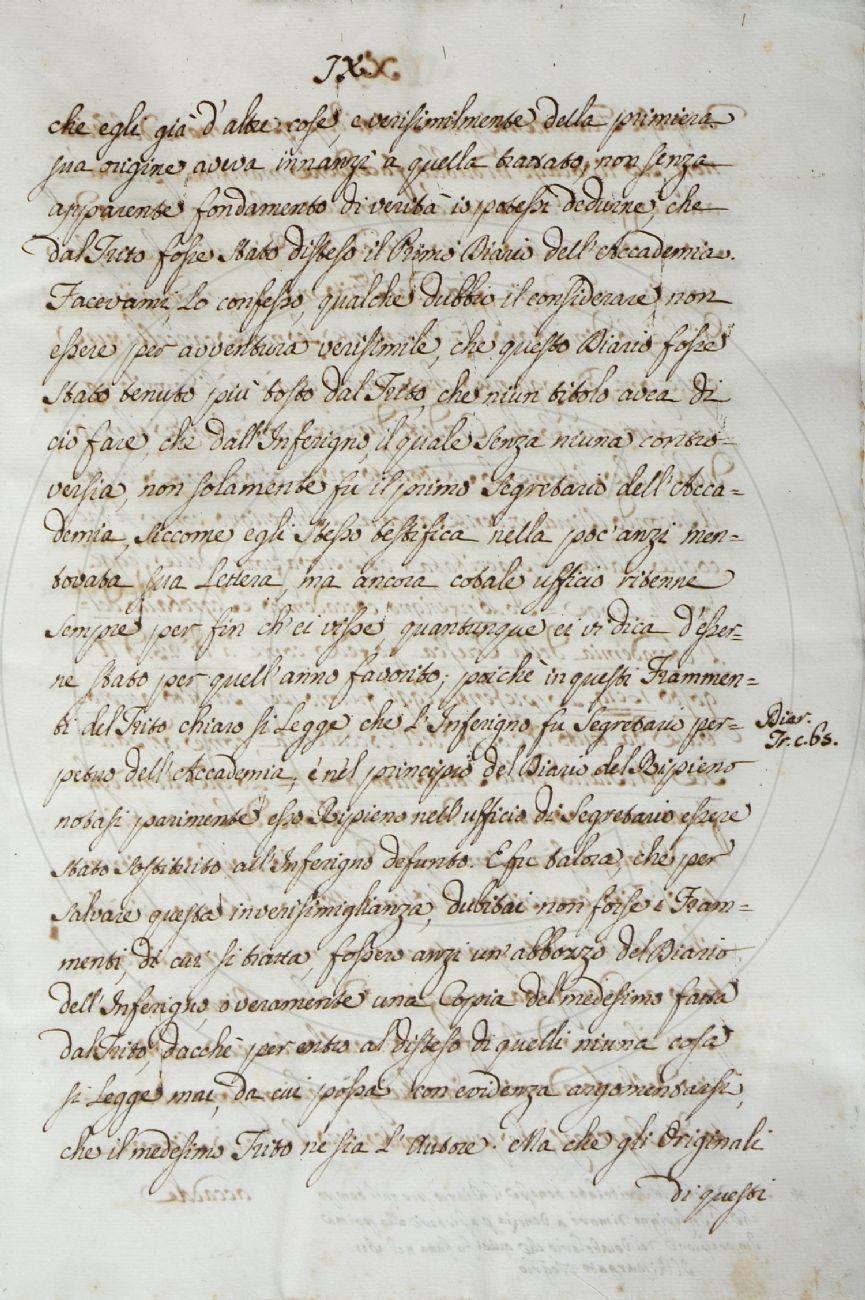 IXX.
che egli già d'altre cose, e verisimilmente della primiera
sua origine aveva innanzi a quella trattato, non senza
apparente fondamento di verità io potessi dedurne, che
dal Trito fosse stato disteso il Primo Diario dell'Accademia.
Facevami, Lo confesso, qualche dubbio il considerare non
essere per avventura verisimile, che questo Diario fosse
stato tenuto più tosto dal Trito, che niun titolo avea di
ciò fare, che dall'Inferigno, il quale senza niuna contro-
versia, non solamente fu il primo Segretario dell'Acca=
demia, siccome egli stesso testifica nella poc'anzi men=
tovata sua Lettera, ma ancora cotale ufficio ritenne
sempre per fin ch'ei visse, quantunque ei vi dica d'esser=
ne stato per quell'anno favorito; poichè in questi Frammen=
ti del Trito chiaro si Legge, che L'Inferigno fu Segretario per=
petuo dell'Accademia, e nel principio del Diario del Ripieno
notasi parimente esso Ripieno nell'ufficio di Segretario essere
stato sostituito all'Inferigno defunto. E fu talora, che per
salvare questa inverisimiglianza, dubitai non forse i Fram=
menti, di cui si tratta, fossero anzi un'abbozzo del Diario
dell'Inferigno, overamente una Copia del medesimo fatta
dal Trito, dacchè per entro al disteso di quelli niuna cosa
si Legge mai, da cui possa con evidenza argomentarsi,
che il medesimo Trito ne sia L'Autore. Ma che gli Originali
di questi
Diar.
Tr. c. 63.